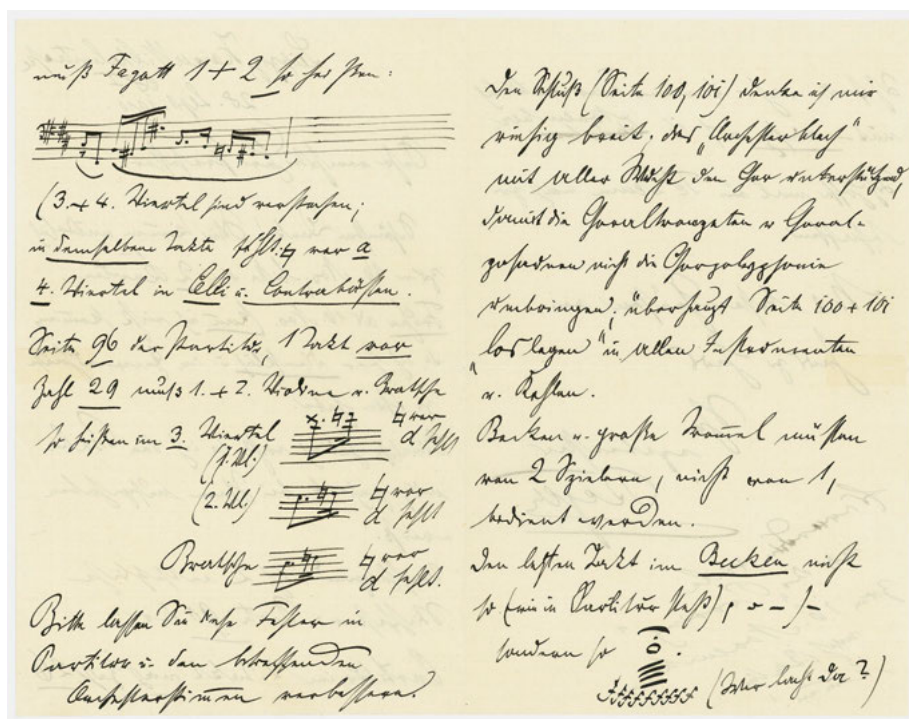 muß Fagott 1 + 2 so heißen:
(3. + 4. Viertel sind verstochen;
in demselben Takte fehlt: ♮ vor a
4. Viertel in Celli u. Contrabässen.
Seite 96 der Partitur, 1 Takt vor
Zahl 29 muß 1. + 2. Violine u. Bratsche
so heißen im 3. Viertel ♮ vor
(1. Vl.) d fehlt
(2. Vl.) ♮ vor
d fehlt
Bratsche ♮ vor
d fehlt.
Bitte lassen Sie diese Fehler in
Partitur u. den betreffenden
Orchesterstimmen verbessern!
Den Schluß (Seite 100, 101) denke ich mir
riesig breit; das „Orchesterblech"
mit aller Wucht den Chor unterstützend,
damit die Choraltrompeten u Choral-
posaunen nicht die Chorpolyphonie
umbringen; überhaupt Seite 100 + 101
„loslegen" in allen Instrumenten
u. Kehlen.
Becken u. große Trommel müssen
von 2 Spielern, nicht von 1,
bedient werden.
Den letzten Takt im Becken nicht
so (wie in Partitur steht)
sondern so
fffffffff (Wer lacht da?)